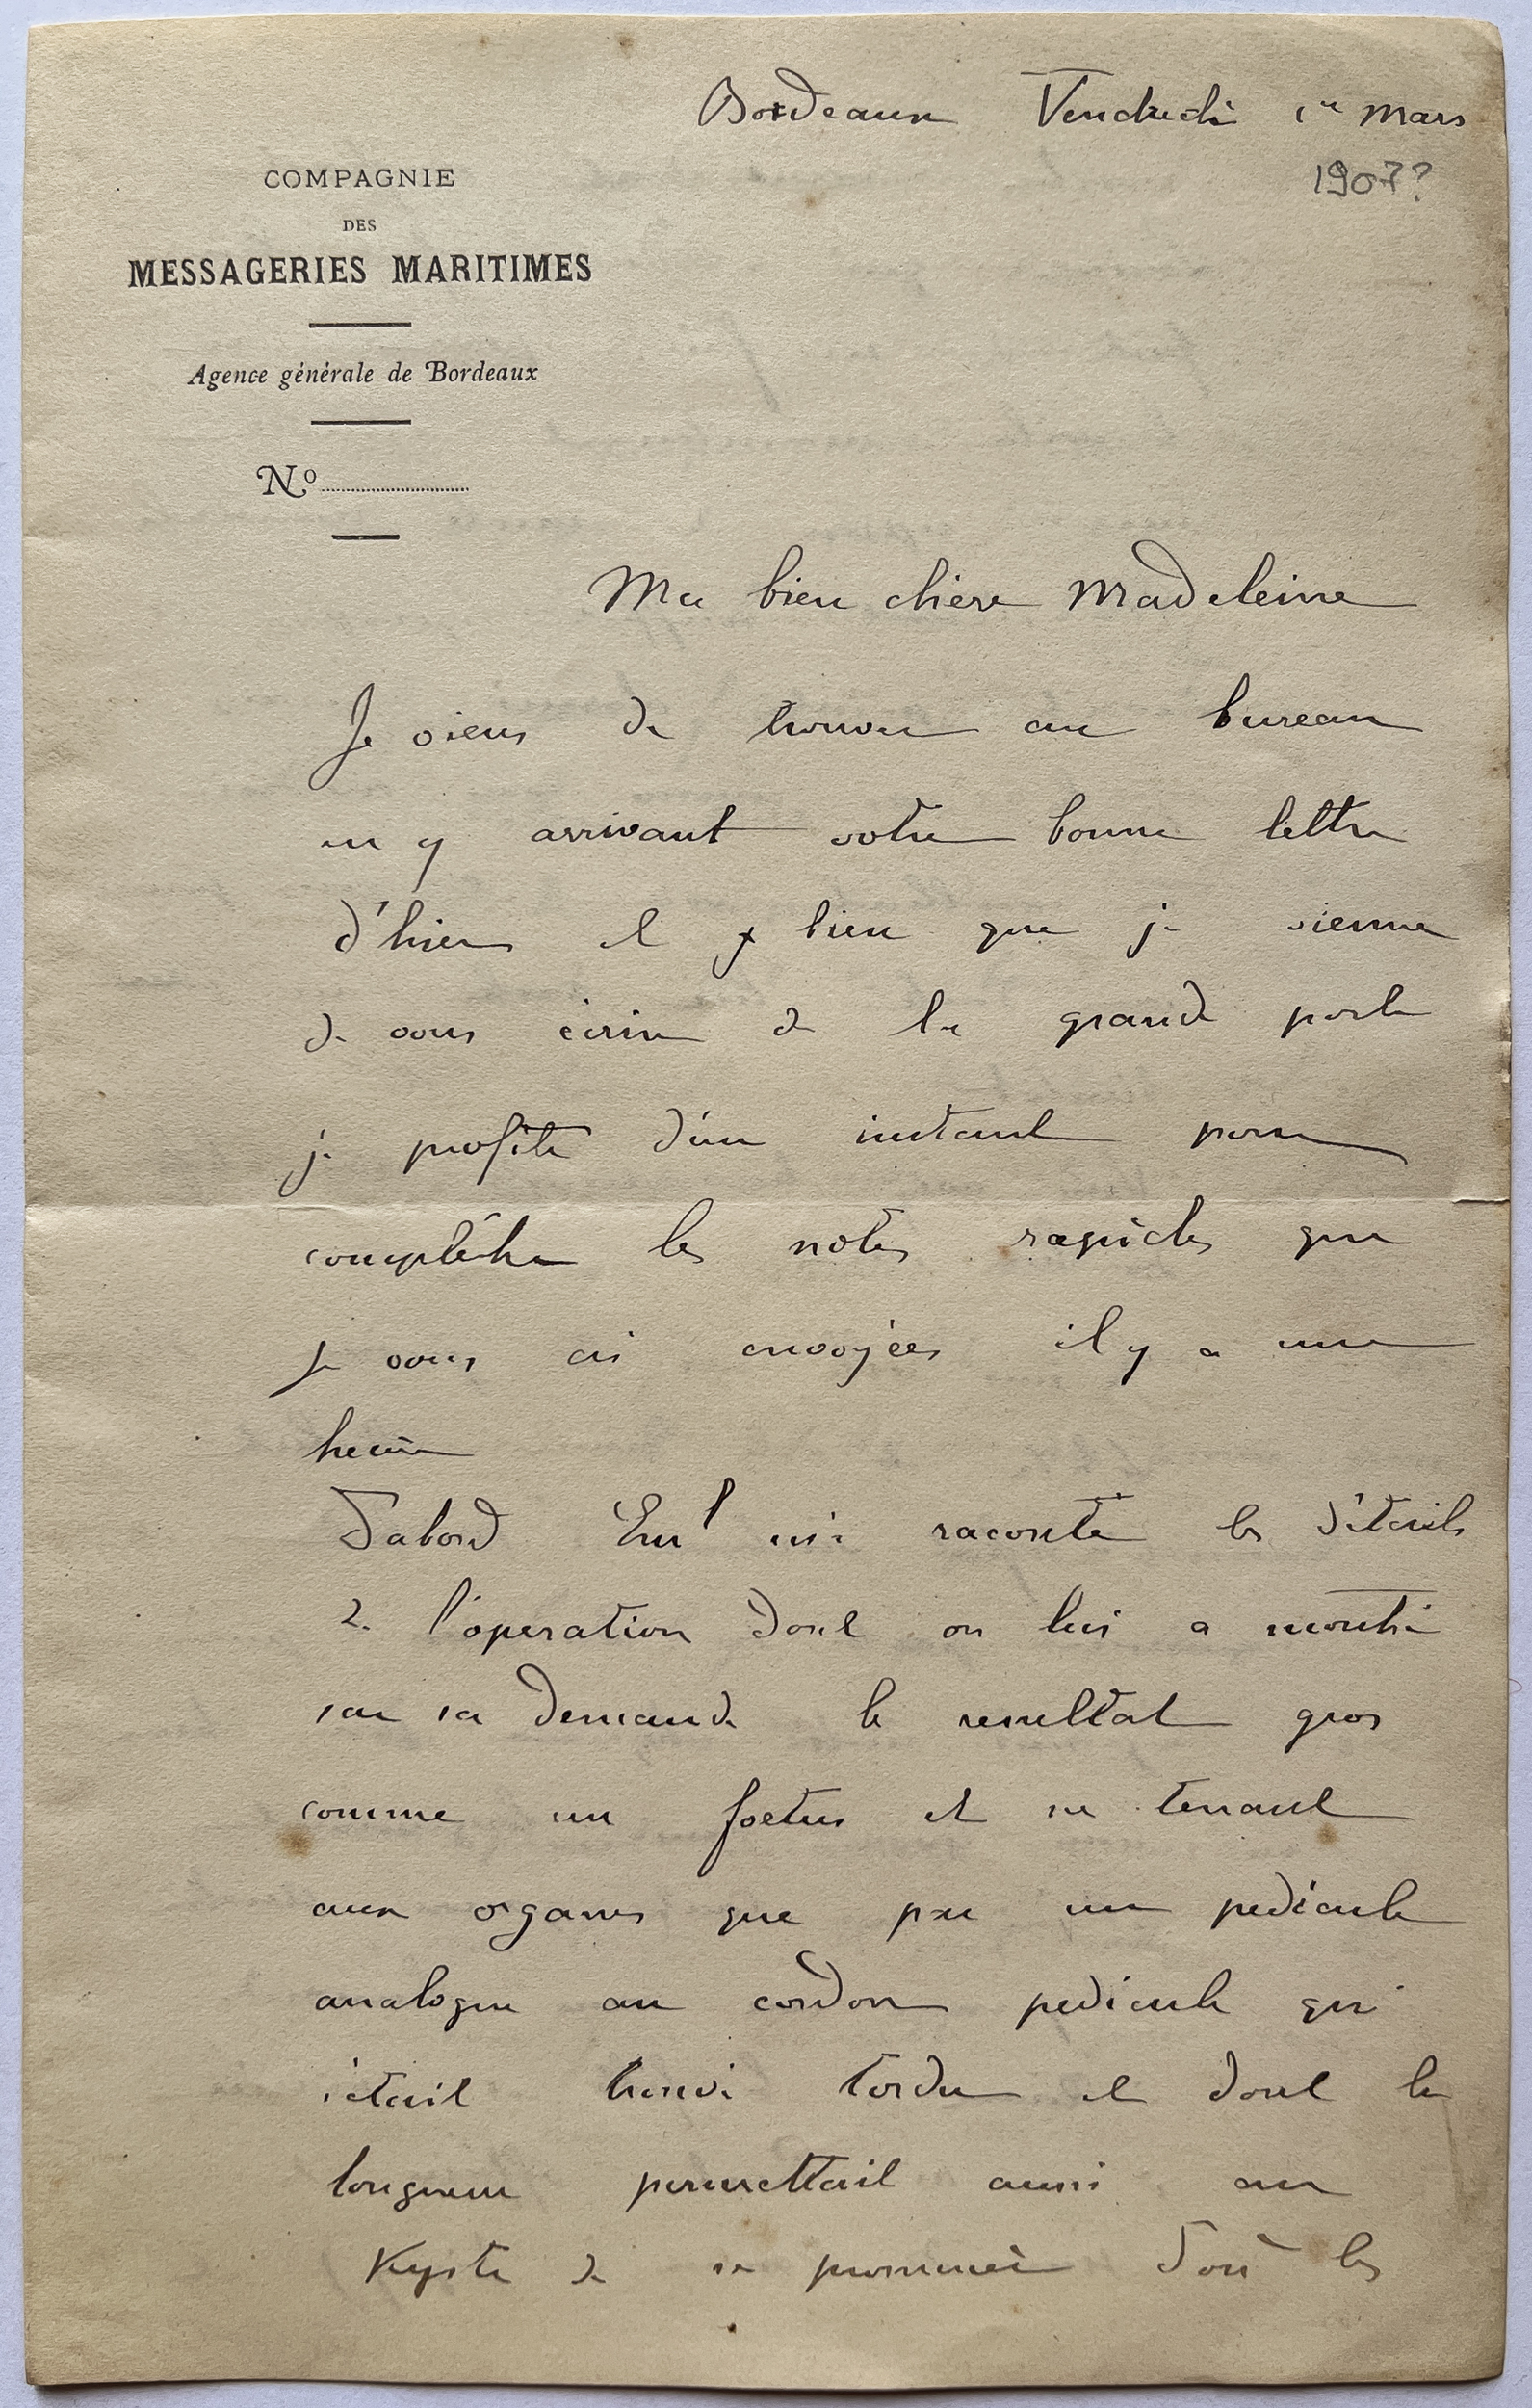 Bordeaux Vendredi 1er Mars
1907?
COMPAGNIE
DES
MESSAGERIES MARITIMES
Agence générale de Bordeaux
No
Ma bien chère Madeleine
Je viens de trouver au bureau
en y arrivant votre bonne lettre
d'hier et bien que je vienne
de vous écrire de la grande poste
je profite d'un instant pour
compléter les notes rapides que
je vous ai envoyées il y a une
heure
D'abord Eml m'a raconté les détails
de l'opération dont on lui a montré
sur sa demande le resultat gros
comme un foetus et ne tenant
aux organes que par un pedicule
analogue au cordon pedicule qui
s'était trouvé tordu et dont la
longueur permettait aussi au
Kyste de se promener d'où les